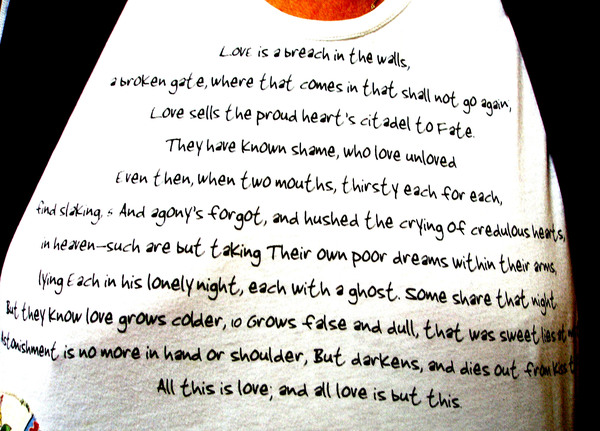 Love is a breach in the walls,
a broken gate, where that comes in that shall not go again,
Love sells the proud heart's citadel to Fate.
They have known shame, who love unloved
Even then, when two mouths, thirsty each for each,
find slaking, 5 And agony's forgot, and hushed the crying of credulous hearts,
in heaven—such are but taking Their own poor dreams within their arms,
lying Each in his lonely night, each with a ghost. Some share that night
But they know love grows colder, 10 Grows false and dull, that was sweet lies at
Astonishment is no more in hand or shoulder, But darkens, and dies out from kiss
All this is love; and all love is but this.